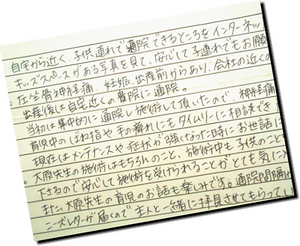 自宅から近く、子供連れで通院できるところをインターネッ
キッズスペースがある写真を見て、安心して子連れでもお願
坐骨神経痛 妊娠、出産前からあり、会社の近くの
出産後は自宅近くの貴院に通院。
当初は集中的に通院し施術して頂いたので 神経痛
育児中のばね指や手の痺れにもタイムリーに相談でき
現在はメンテナンスや症状が強くなった時にお世話に
大原先生の施術はもちろんのこと、施術中も子供のこと
下さるので安心して施術を受けられることがとても気に
また、大原先生の育児のお話も楽しみです。通院間隔
ニュースレターが届くので主人と一緒に拝見させてもらってい